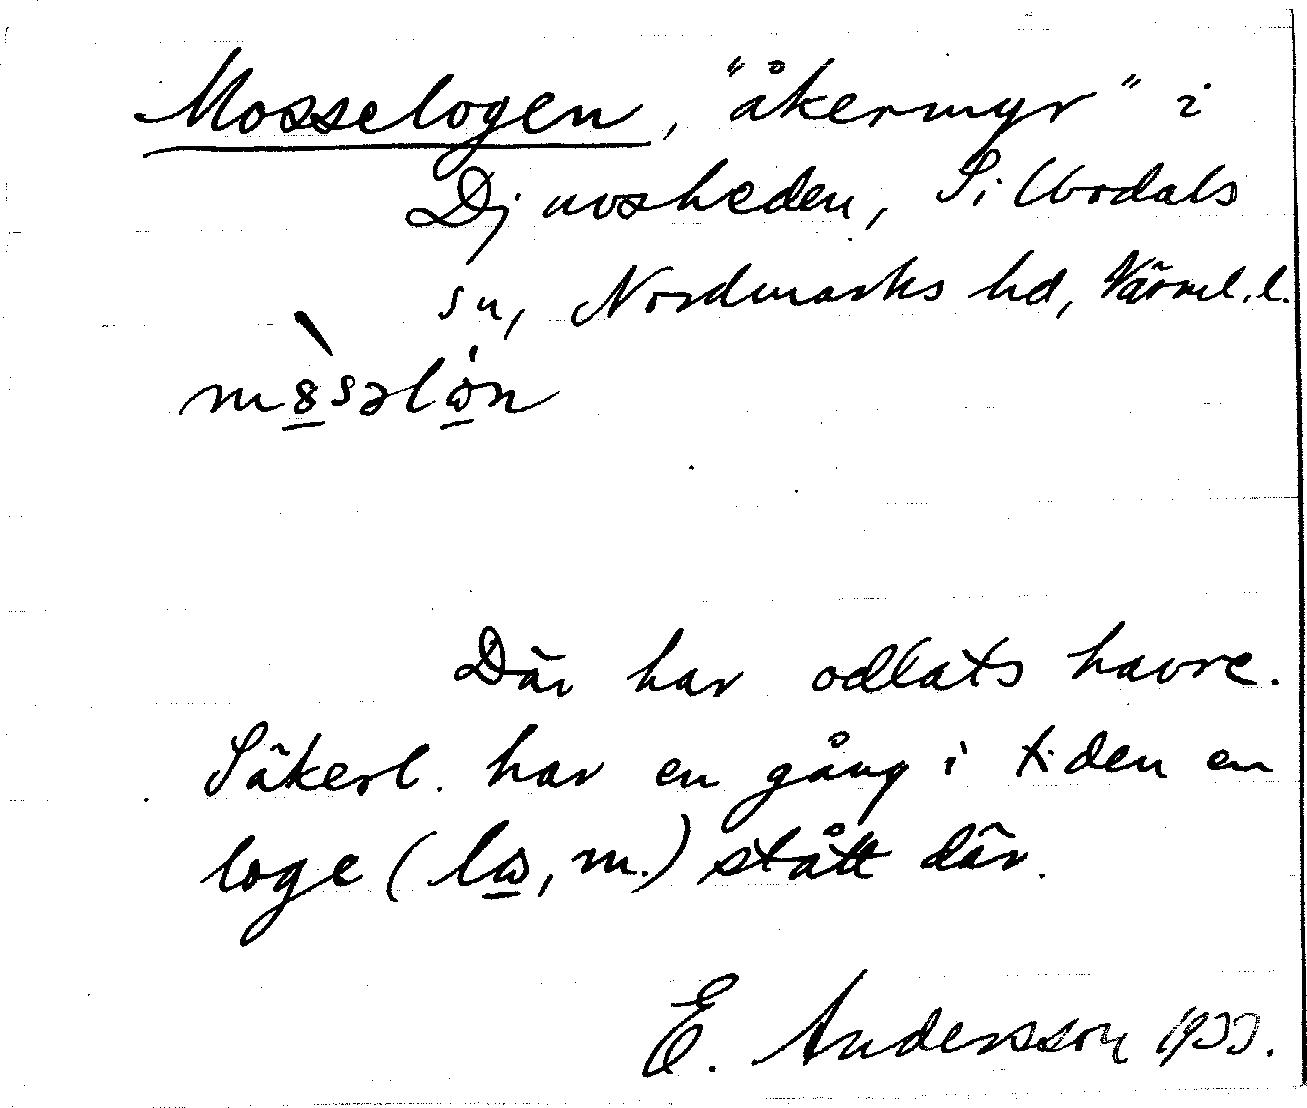 Mosselogen, "åkermyr" i
Djuvsheden, Sillbodals
sn, Nordmarks hd, Värml. l.
Där har odlats havre.
Säkerl. har en gång i tiden en
loge (lω, m.) stått där.
E. Andersson 1933.